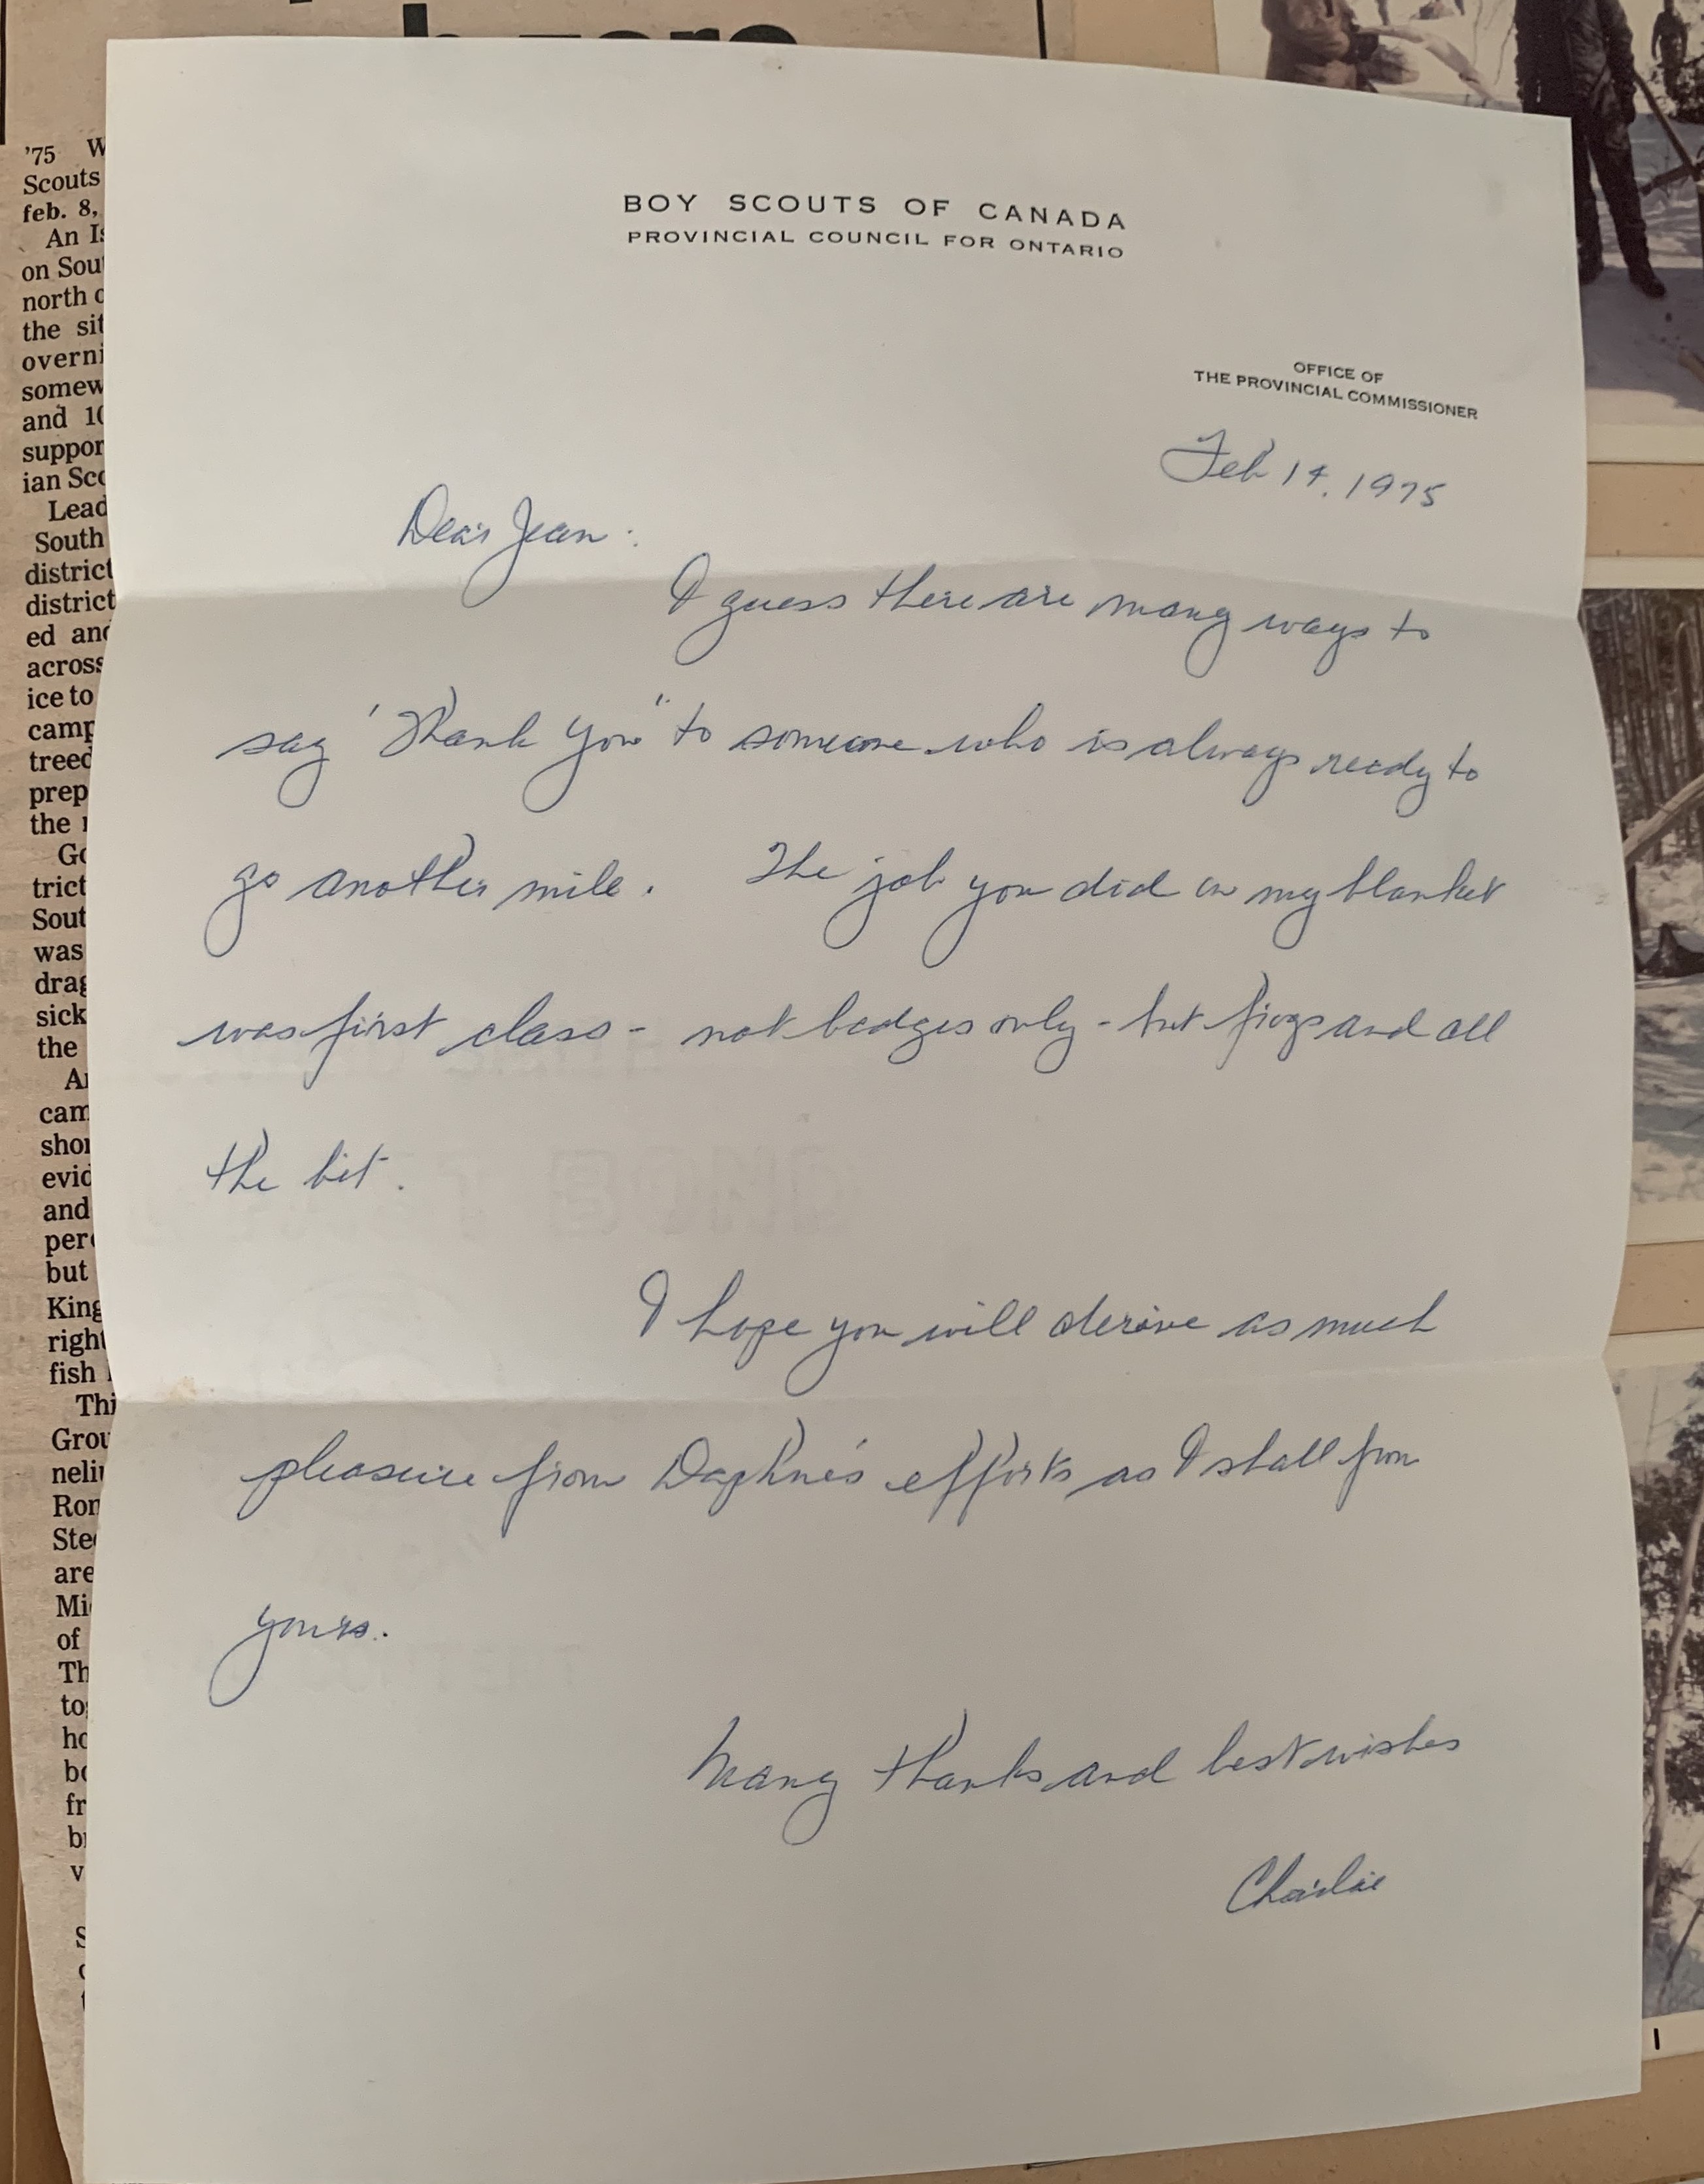 h zero
'75 W
Scouts
feb. 8,
An Is
on Sou
north o
the sit
overni
somew
and 10
suppor
ian Sco
Lead
South
district
district
ed and
across
ice to
camp
treed
prep
the
Go
trict
Sout
was
drag
sick
the
Ar
cam
shor
evid
and
per
but
King
right
fish
Thi
Grou
nelin
Ron
Ste
are
Mi
of
Th
to
ho
bo
fr
br
v
S
BOY SCOUTS OF CANADA
PROVINCIAL COUNCIL FOR ONTARIO
OFFICE OF
THE PROVINCIAL COMMISSIONER
Feb 14, 1975
Dear Jean:
I guess there are many ways to
say 'Thank You" to someone who is always ready to
go another mile. The job you did on my blanket
was first class - not badges only - but frogs and all
the bit.
I hope you will derive as much
pleasure from Daphne's efforts as I shall from
yours.
Many thanks and best wishes
Charlie